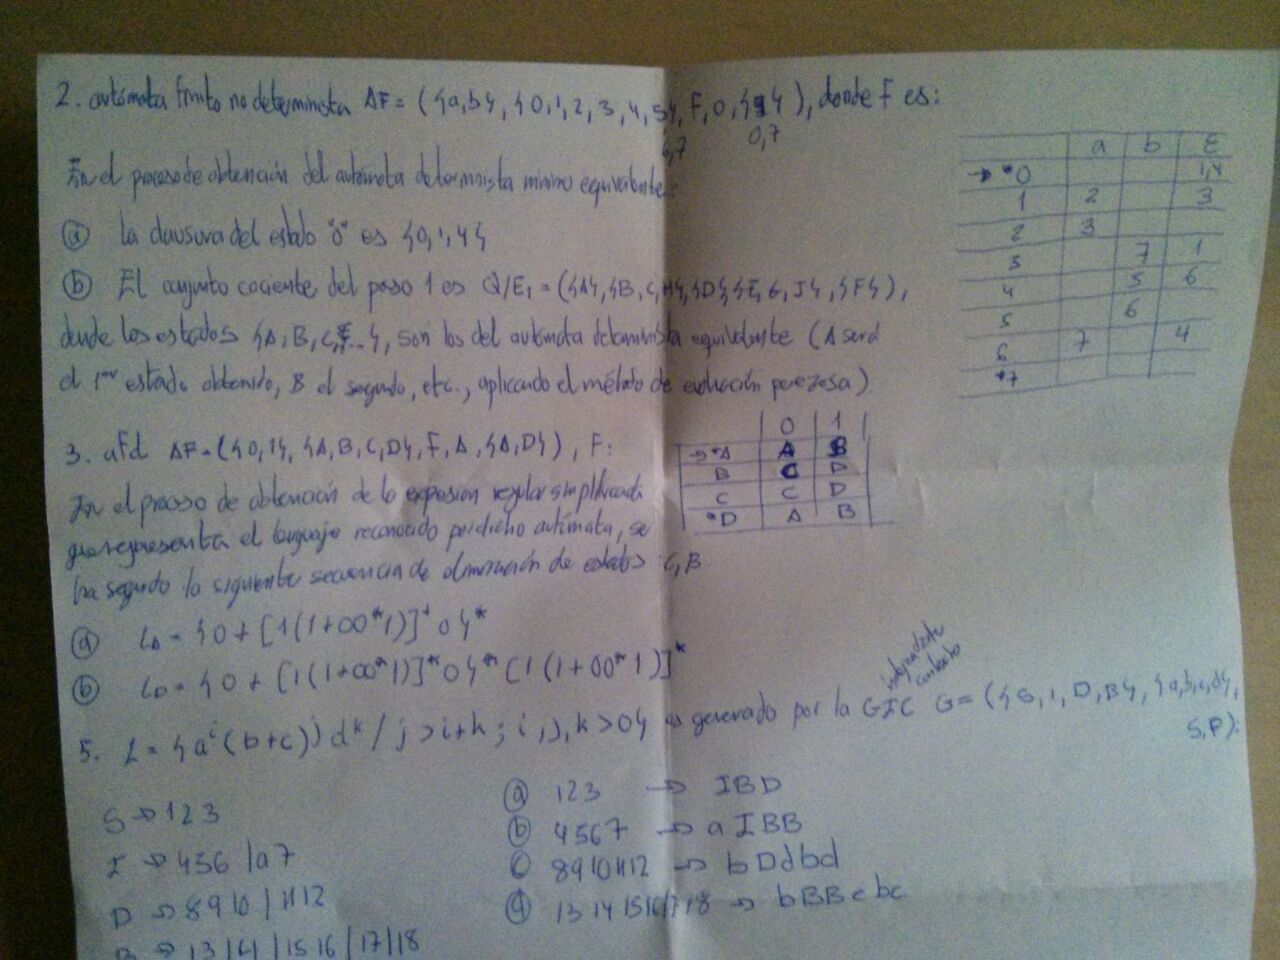 2. autómata finito no determinista AF = ({a,b}, {0,1,2,3,4,5}, F, 0, {}), donde F es:
6,7
0,7
a b ε
→ *0 1,4
1 2 3
2 3
3 7 1
4 5 6
5 6
6 7 4
*7
En el proceso de obtención del autómata determinista mínimo equivalente:
(a) La clausura del estado "0" es {0,1,4}
(b) El conjunto cociente del paso 1 es Q/E₁ = ({A}, {B, C, H}, {D}, {E, G, I}, {F}),
donde los estados {A, B, C, ...}, son los del autómata determinista equivalente (A será
el 1er estado obtenido, B el segundo, etc., aplicando el método de evaluación perezosa).
3. afd AF = ({0,1}, {A,B,C,D}, F, A, {A,D}), F:
0 1
→ *A A B
B C D
C C D
*D A B
En el proceso de obtención de la expresión regular simplificada
que representa el lenguaje reconocido por dicho autómata, se
ha seguido la siguiente secuencia de eliminación de estados: C, B.
(a) = {0 + [1(1+00*1)]* 0}*
(b) = {0 + [1(1+00*1)]* 0}* [1(1+00*1)]*
5. L = {a^i (b+c)^j d^k / j > i+k ; i, j, k > 0} es generado por la GIC G = ({S, I, D, B}, {a,b,c,d},
independiente
contexto
S, P):
S → 1 2 3
I → 4 5 6 | a 7
D → 8 9 10 | 11 12
B → 13 14 | 15 16 | 17 | 18
(a) 1 2 3 → I B D
(b) 4 5 6 7 → a I B B
(c) 8 9 10 11 12 → b D d b d
(d) 13 14 15 16 17 18 → b B B c b c